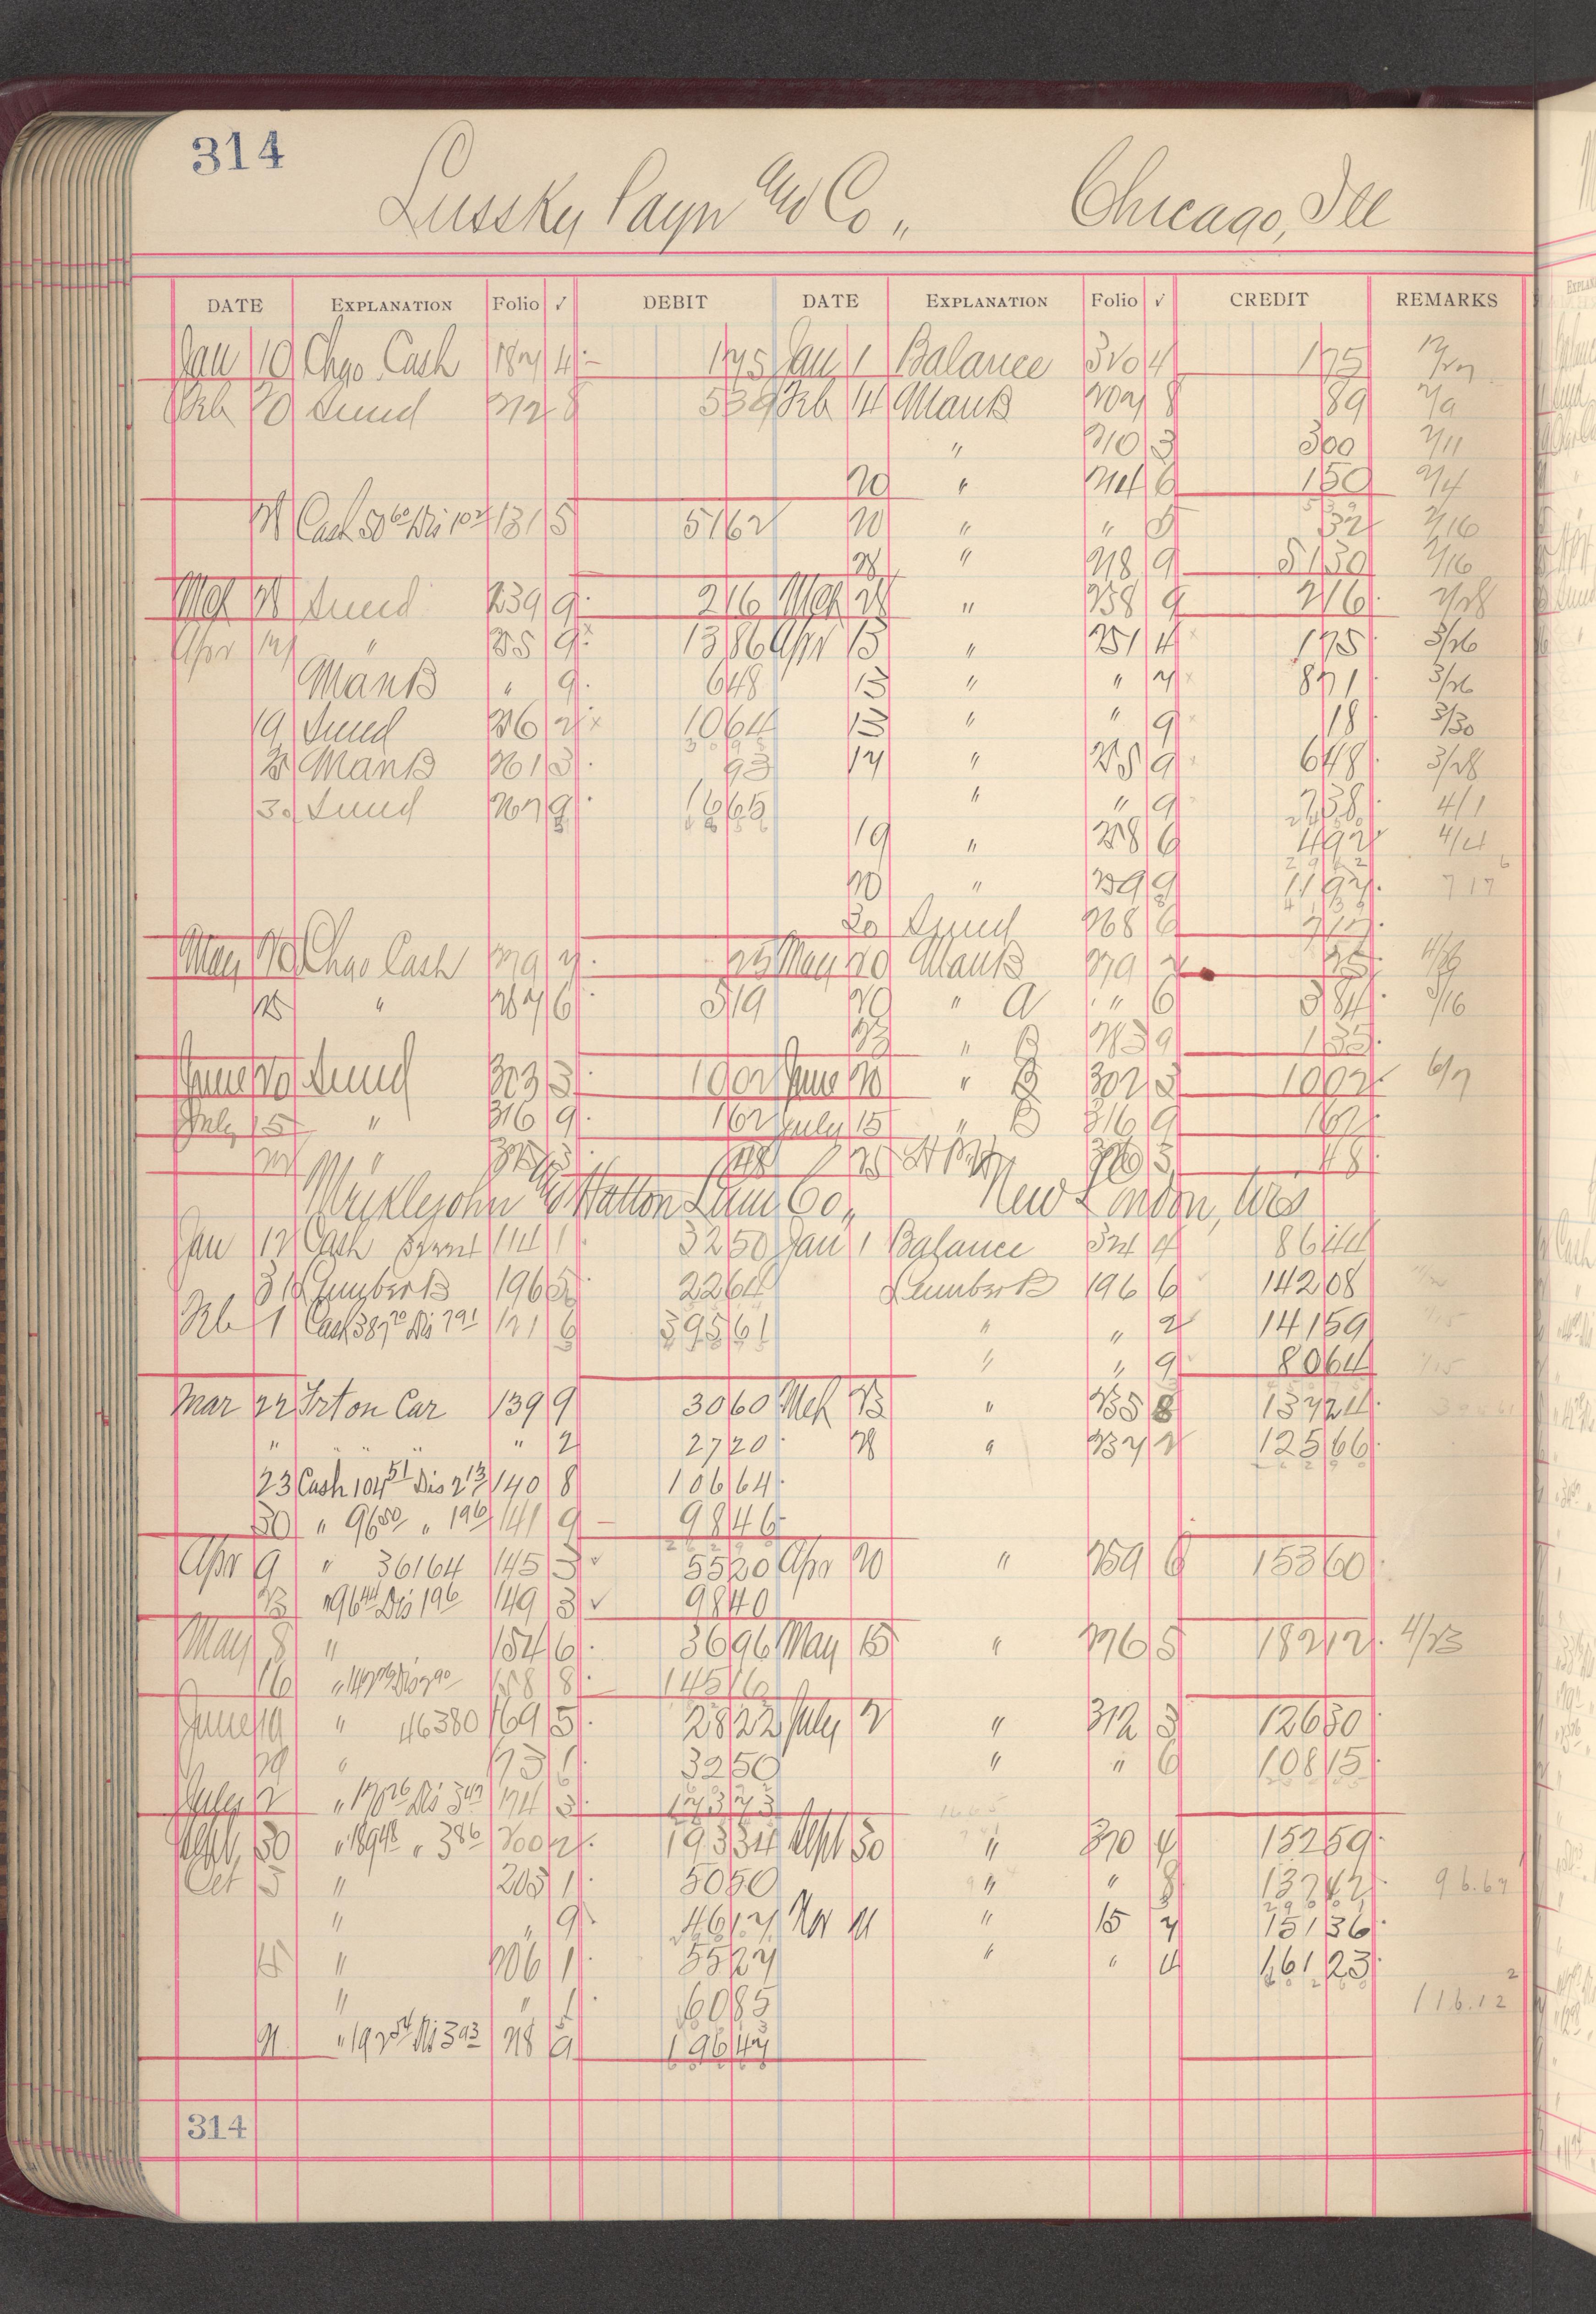 314
Lussky Payn & Co,, Chicago, Ill
DATE EXPLANATION Folio √ DEBIT DATE EXPLANATION Folio √ CREDIT REMARKS
Jan 10 Chgo Cash 4 175 Jan 1 Balance 320 4 175
Feb 20 Sund 212 8 539 Feb 14 ManB 207 8 89 2/9
" 210 3 300 2/11
20 " 214 6 150 2/4
Cash 131 5 5162 20 " " 5 32 2/16
28 " 218 9 5130 2/16
Mch 28 Sund 239 9 216 Mch 28 " 238 9 216 2/28
Apr 17 " 255 9 1386 Apr 13 " 251 4 175 3/26
ManB " 9 648 13 " " 7 871 3/26
19 Sund 1064 13 " " 9 18 3/30
ManB 261 3 93 17 " 9 648 3/28
30 Sund 267 9 1665 " " 9 238 4/1
19 " 258 6 492 4/4
20 " 259 9 1197 717
30 Sund 268 6 717
May 20 Chgo Cash 279 7 25 May 20 ManB 279 7 25
25 " 287 6 519 20 " A " 6 384 5/16
23 " B 283 9 135
June 20 Sund 303 3 1002 June 20 " B 302 3 1002 6/7
July 15 " 316 9 162 July 15 " B 316 9 162
" 3 48 25 3 48
Hatton Lum Co,, New London, Wis
Jan 12 Cash 114 1 3250 Jan 1 Balance 324 4 8644
31 LumberB 196 5 2264 LumberB 196 6 14208
Feb 1 Cash 387 70 Dis 7 91 121 6 39561 " " 2 14159
" " 9 8064
Mar 22 Frt on Car 139 9 3060 Mch 23 " 235 8 13724
" " " " " 2 2720 28 " 237 2 12566
23 Cash 104 51 Dis 2 13 140 8 10664
30 " 96 50 " 1 96 141 9 9846
Apr 9 " 36164 145 3 5520 Apr 20 " 259 6 15360
23 " 96 44 Dis 1 96 149 3 9840
May 8 " 154 6 3696 May 15 " 276 5 18212 4/23
16 " 158 8 14516
June 19 " 46380 169 5 2822 July 2 " 312 3 12630
29 " 173 1 3250 " " 6 10815
July 2 " 170 26 Dis 3 47 174 3 17373
Sept 30 " 189 48 " 3 86 200 2 19334 Sept 30 " 370 4 15259
Oct 5 " 205 1 5050 " " 8 13242 96.67
" " 9 4617 Nov 21 " 15 7 15136
" 206 1 5527 " " 4 16123
" " 1 6085 116.12
21 " 192 54 Dis 3 93 218 9 19647
314